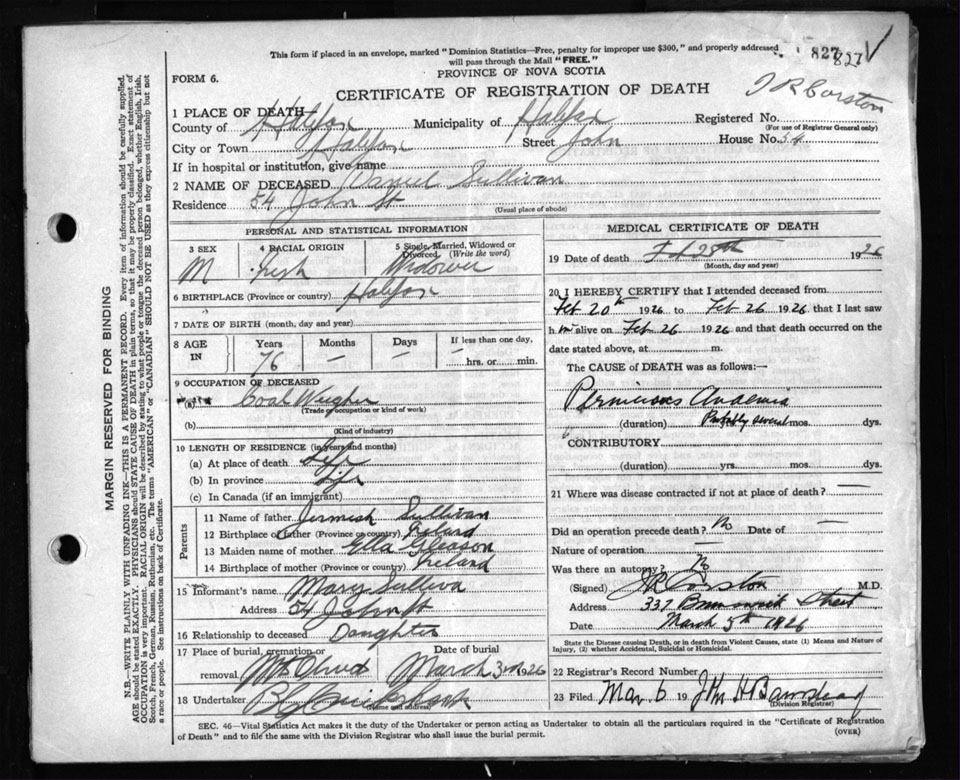 This form if placed in an envelope, marked "Dominion Statistics—Free, penalty for improper use $300," and properly addressed
will pass through the Mail "FREE."
827 827
PROVINCE OF NOVA SCOTIA
FORM 6.
CERTIFICATE OF REGISTRATION OF DEATH
J R Corston
1 PLACE OF DEATH
County of Halifax Municipality of Halifax Registered No.
(For use of Registrar General only)
City or Town Halifax Street John House No. 54
If in hospital or institution, give name
2 NAME OF DECEASED Daniel Sullivan
Residence 54 John St
(Usual place of abode)
PERSONAL AND STATISTICAL INFORMATION
3 SEX 4 RACIAL ORIGIN 5 Single, Married, Widowed or Divorced. (Write the word)
M Irish Widower
6 BIRTHPLACE (Province or country) Halifax
7 DATE OF BIRTH (month, day and year)
8 AGE IN Years Months Days If less than one day,
76 — — — hrs. or min.
9 OCCUPATION OF DECEASED
(a) Coal Weigher
(Trade or occupation or kind of work)
(b)
(Kind of industry)
10 LENGTH OF RESIDENCE (in years and months)
(a) At place of death Life
(b) In province Life
(c) In Canada (if an immigrant)
Parents
11 Name of father Jermish Sullivan
12 Birthplace of father (Province or country)
13 Maiden name of mother Ella Gleeson
14 Birthplace of mother (Province or country) Ireland
15 Informant's name Mary Sulliva
Address 54 John St
16 Relationship to deceased Daughter
17 Place of burial, cremation or removal Mt Olivet Date of burial March 3rd 1926
18 Undertaker
(Name and address)
MEDICAL CERTIFICATE OF DEATH
19 Date of death 1926
(Month, day and year)
20 I HEREBY CERTIFY that I attended deceased from
Feb 20th 1926 to Feb 26 1926 that I last saw
him alive on Feb 26 1926 and that death occurred on the
date stated above, at m.
The CAUSE of DEATH was as follows:—
Pernicious Anaemia
(duration) Probably several mos. dys.
CONTRIBUTORY
(duration) yrs. mos. dys.
21 Where was disease contracted if not at place of death? —
Did an operation precede death? No Date of —
Nature of operation —
Was there an autopsy? No
(Signed) J R Corston M.D.
Address 337 Brunswick Street
Date March 5th 1926
State the Disease causing Death, or in death from Violent Causes, state (1) Means and Nature of
Injury, (2) whether Accidental, Suicidal or Homicidal.
22 Registrar's Record Number
23 Filed Mar. 6 19
(Division Registrar)
SEC. 46—Vital Statistics Act makes it the duty of the Undertaker or person acting as Undertaker to obtain all the particulars required in the "Certificate of Registration
of Death" and to file the same with the Division Registrar who shall issue the burial permit.
(OVER)
MARGIN RESERVED FOR BINDING
N.B.—WRITE PLAINLY WITH UNFADING INK—THIS IS A PERMANENT RECORD. Every item of information should be carefully supplied.
AGE should be stated EXACTLY. PHYSICIANS should STATE CAUSE OF DEATH in plain terms, so that it may be properly classified. Exact statement of
OCCUPATION is very important. RACIAL ORIGIN will be described by stating to what people or tongue the deceased person belonged, whether English, Irish,
Scotch, French, German, Russian, Ruthenian, etc. The terms "AMERICAN" or "CANADIAN" SHOULD NOT BE USED as they express citizenship but not
a race or people. See instructions on back of Certificate.